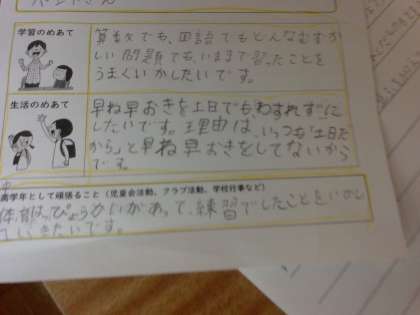 学習のめあて
算数でも、国語でもどんなむずか
しい問題でも、いままで習ったことを
うまくいかしたいです。
生活のめあて
早ね早おきを土日でもわすれずに
したいです。理由は、いつも「土日だ
から」と早ね早おきをしてないから
です。
高学年として頑張ること（児童会活動、クラブ活動、学校行事など）
体育はっぴょうかいがあって、練習でしたことをいかし
ていきたいです。